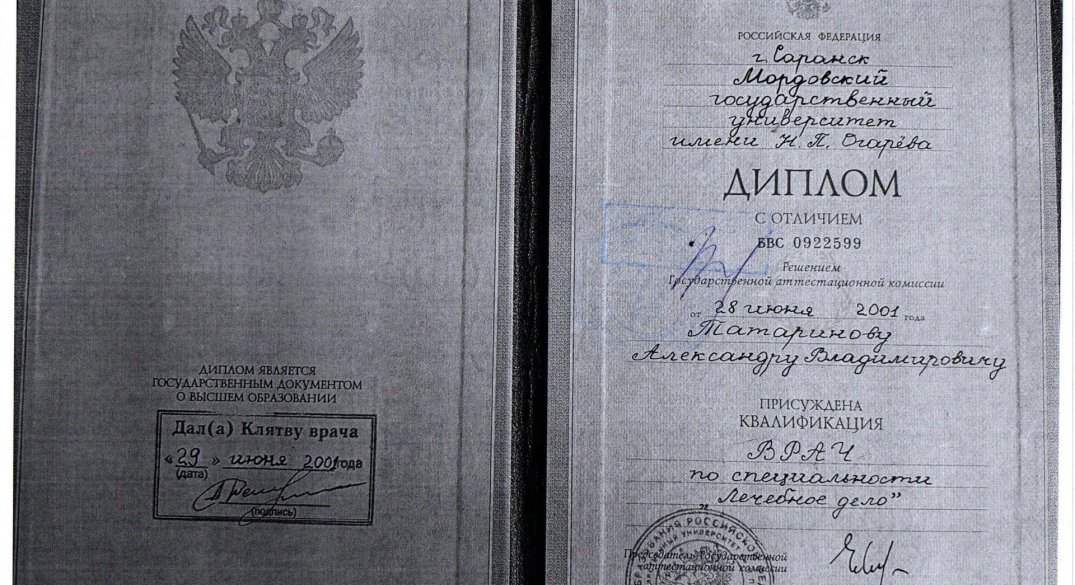 ДИПЛОМ ЯВЛЯЕТСЯ
ГОСУДАРСТВЕННЫМ ДОКУМЕНТОМ
О ВЫСШЕМ ОБРАЗОВАНИИ
Дал(а) Клятву врача
«29» июня 2001года
(дата)
(подпись)
РОССИЙСКАЯ ФЕДЕРАЦИЯ
г. Саранск
Мордовский
государственный
университет
имени Н. П. Огарёва
ДИПЛОМ
С ОТЛИЧИЕМ
БВС 0922599
Решением
Государственной аттестационной комиссии
от 28 июня 2001 года
Татаринову
Александру Владимировичу
ПРИСУЖДЕНА
КВАЛИФИКАЦИЯ
ВРАЧ
по специальности
„Лечебное дело"
Председатель Государственной
аттестационной комиссии